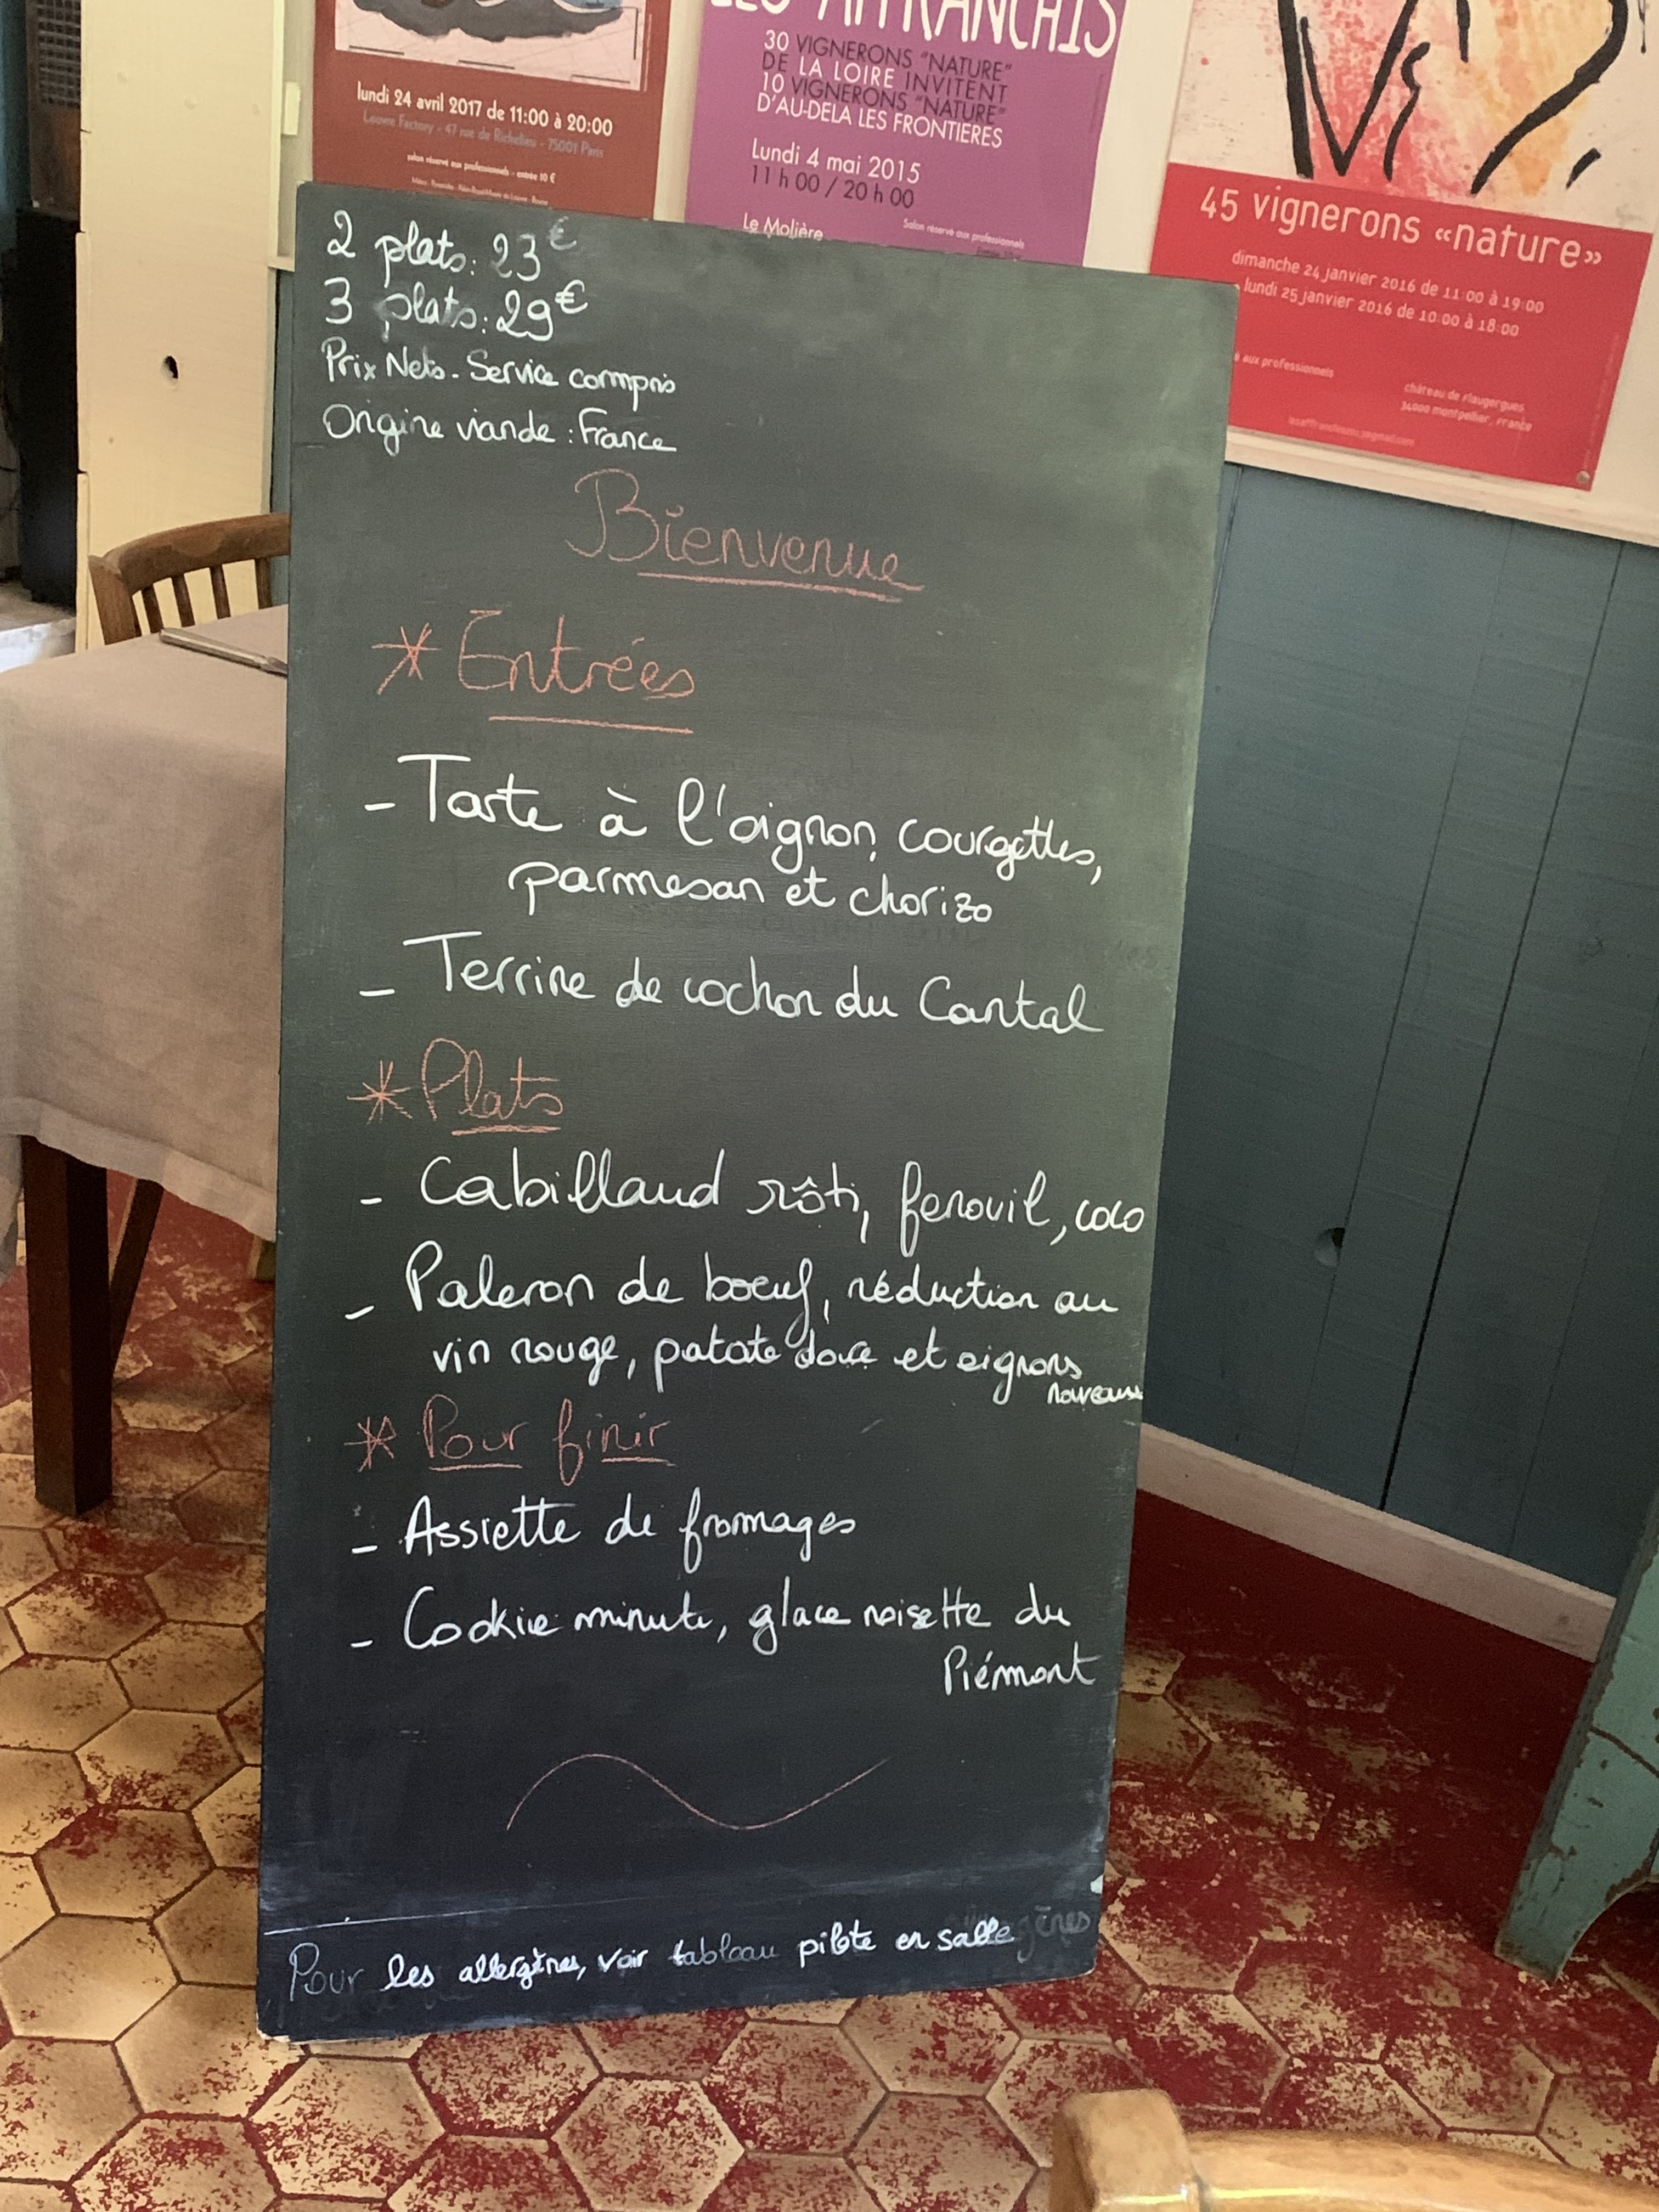 lundi 24 avril 2017 de 11:00 à 20:00
Louvre Factory - 47 rue de Richelieu - 75001 Paris
salon réservé aux professionnels - entrée 10 €
LES AFFRANCHIS
30 VIGNERONS "NATURE"
DE LA LOIRE INVITENT
10 VIGNERONS "NATURE"
D'AU-DELA LES FRONTIERES
Lundi 4 mai 2015
11 h 00 / 20 h 00
Le Molière
Salon réservé aux professionnels
45 vignerons «nature»
dimanche 24 janvier 2016 de 11:00 à 19:00
lundi 25 janvier 2016 de 10:00 à 18:00
é aux professionnels
château de flaugergues
34000 montpellier, france
2 plats: 23€
3 plats: 29€
Prix Nets - Service compris
Origine viande : France
Bienvenue
* Entrées
- Tarte à l'oignon, courgettes,
parmesan et chorizo
- Terrine de cochon du Cantal
* Plats
- Cabillaud rôti, fenouil, coco
- Paleron de boeuf, réduction au
vin rouge, patate douce et oignons
nouveaux
* Pour finir
- Assiette de fromages
- Cookie minute, glace noisette du
Piémont
Pour les allergènes, voir tableau pilote en salle